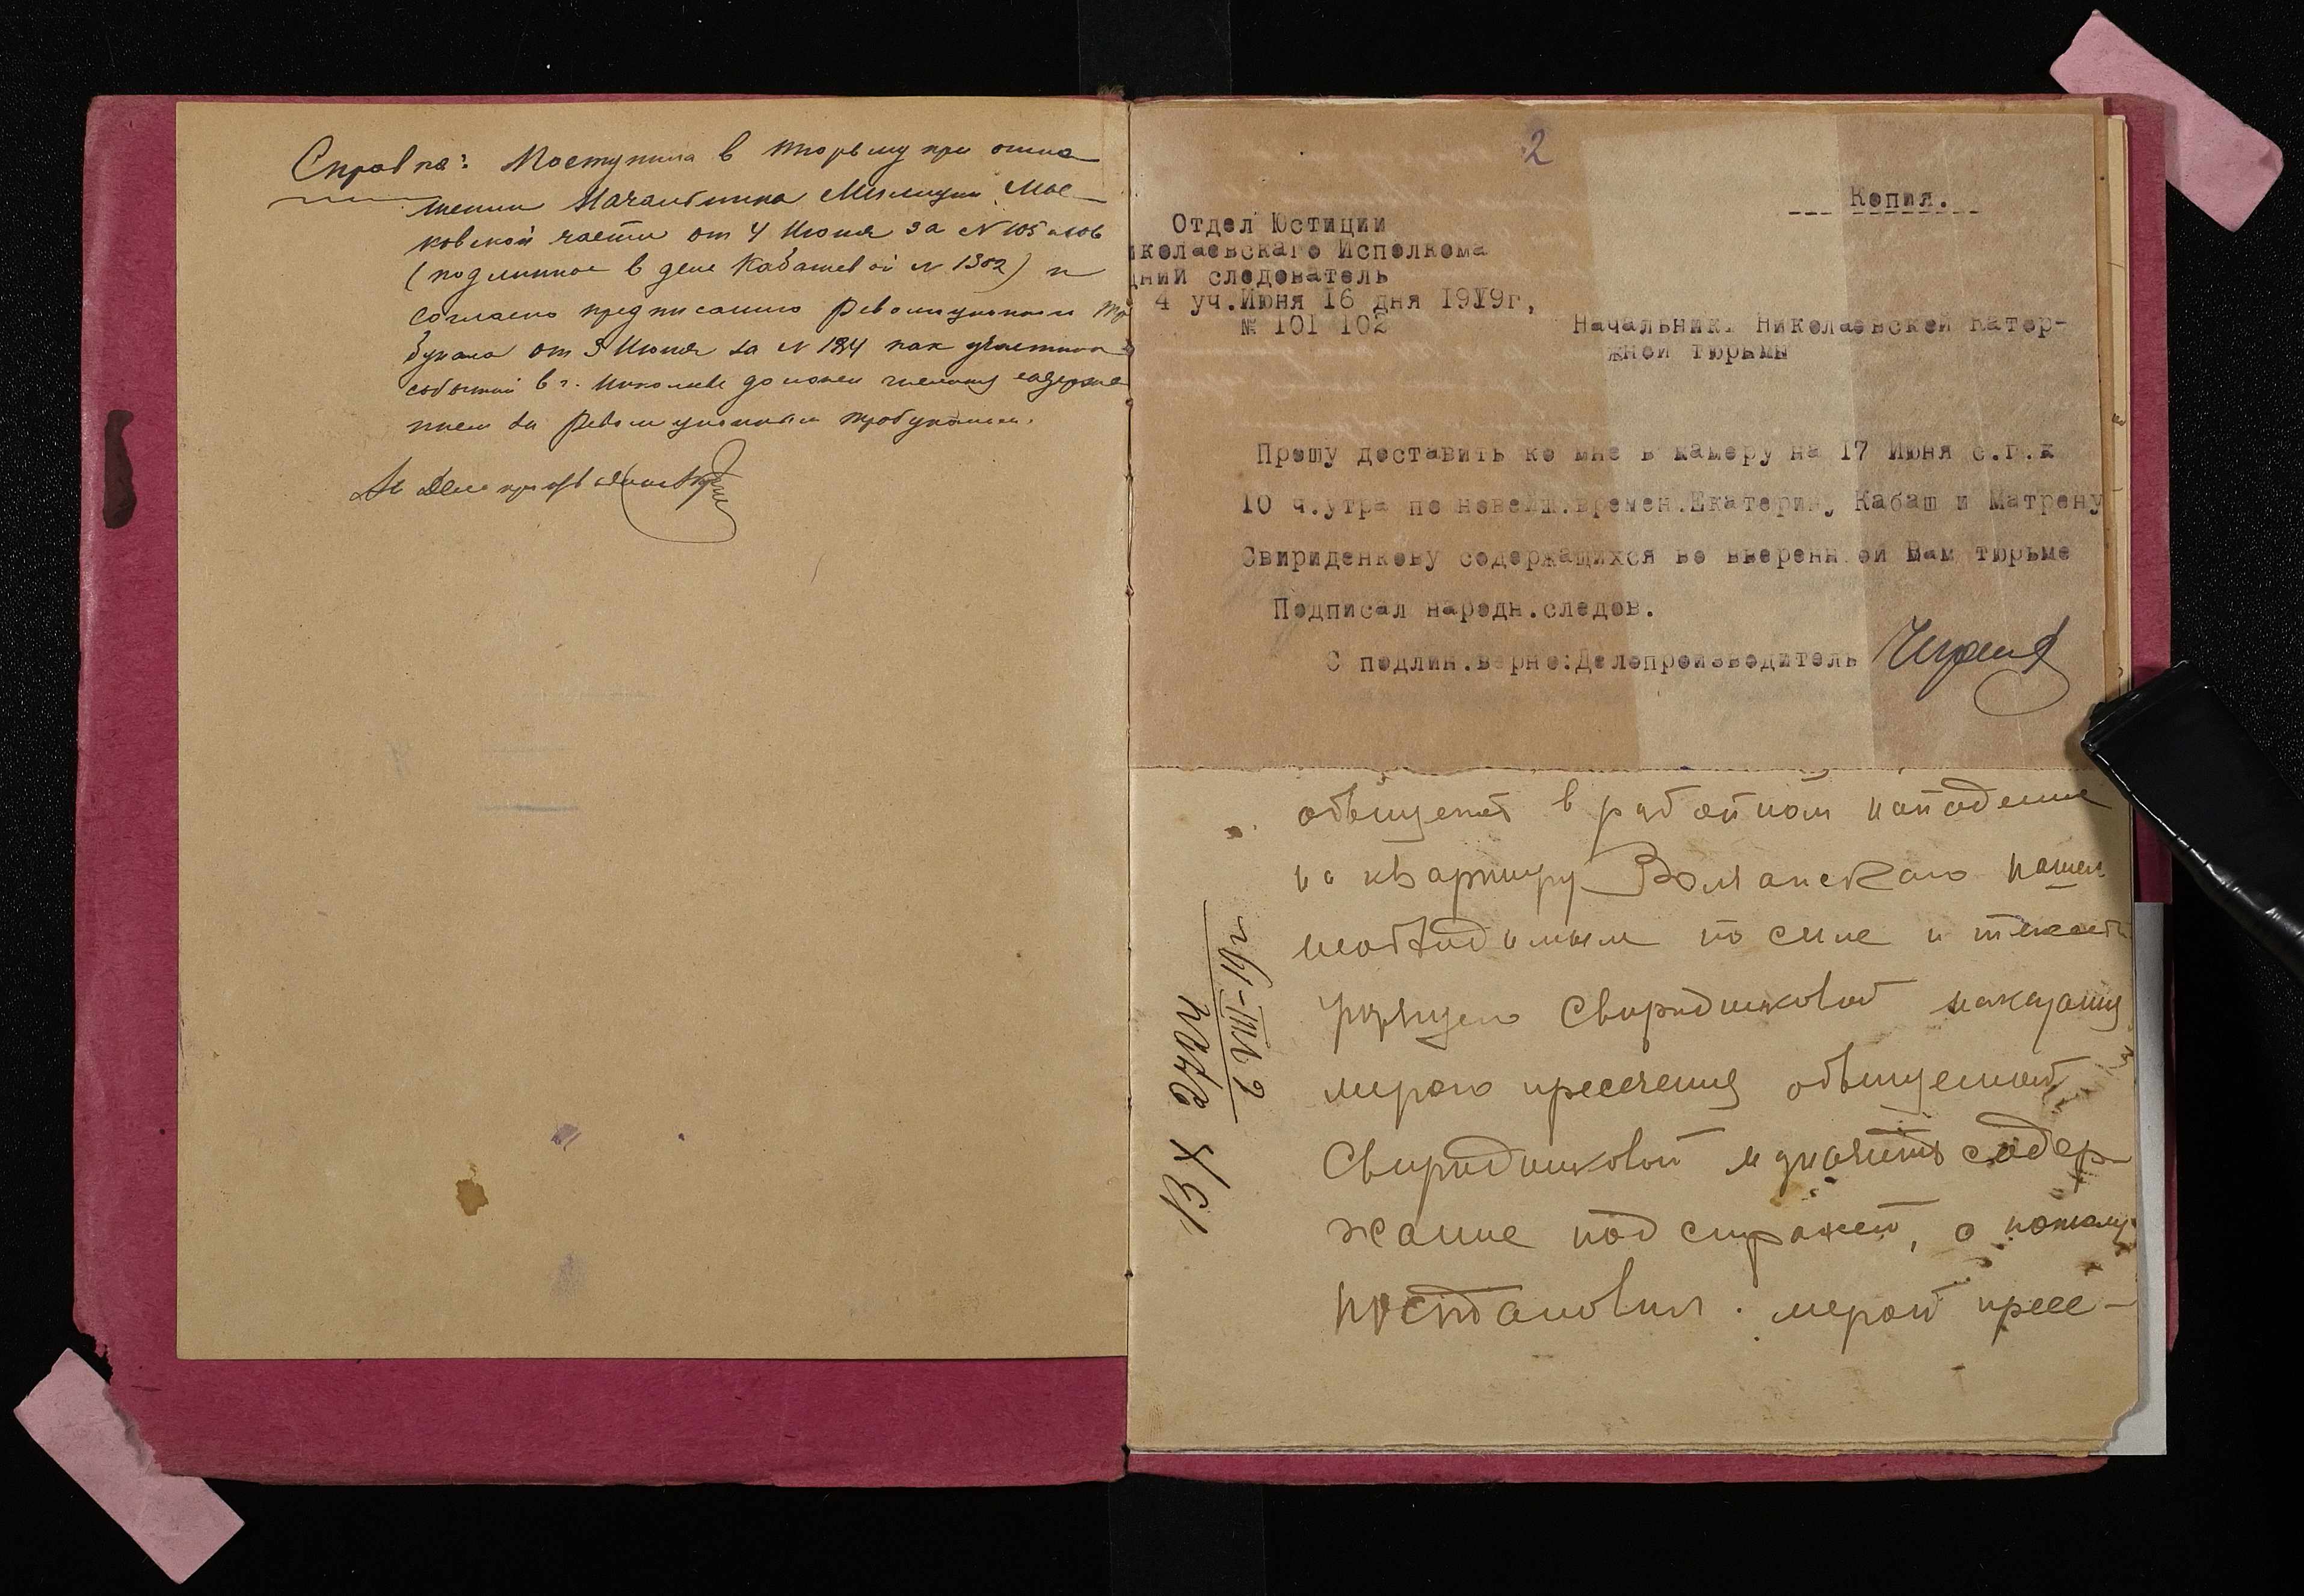 Справка: Поступила в тюрьму при отно
шении Начальника Милиции Мос-
ковской части от 4 Июня за № 105 и 106
(подлинное в деле Кабашевой № 1302) и
согласно предписанию Революционн Три
бунала от 9 Июня за № 184 как участник
событий в г. Николаеве должен числиться содержа
нием за Революционным трибуналом.
2
Копия.
Отдел Юстиции
иколаевскаго Исполкома
дний следователь
4 уч.Июня 16 дня 1919г,
№ 101 102
Начальник. Николаевской Катор-
жной тюрьмы
Прошу доставить ко мне в камеру на 17 Июня с.г.к
10 ч.утра по новейш.времен.Екатерину Кабаш и Матрену
Свириденкову содержащихся во вверенн ой Вам тюрьме
Подписал народн.следов.
С подлин.верно:Делопроизводитель
обвиняемой в разбойном нападении
на квартиру Волянскаго нашел
необходимым по силе и тяжести
грозящего Свиридинковой наказания
мерою пресечения обвиняемой
Свиридинковой назначить содер-
жание под стражей, а потому
постановил: мерой пресе-
ВХ 2704
2 VIII-19г